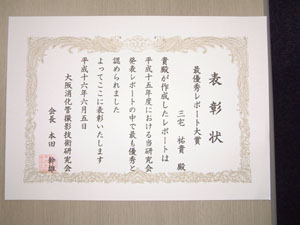 表彰状
最優秀レポート大賞
三宅 祐貴 殿
貴殿が作成したレポートは
平成十五年度における当研究会
発表レポートの中で最も優秀と
認められました
よってここに表彰いたします
平成十六年六月五日
大阪消化管撮影技術研究会
会長 本田 幹雄